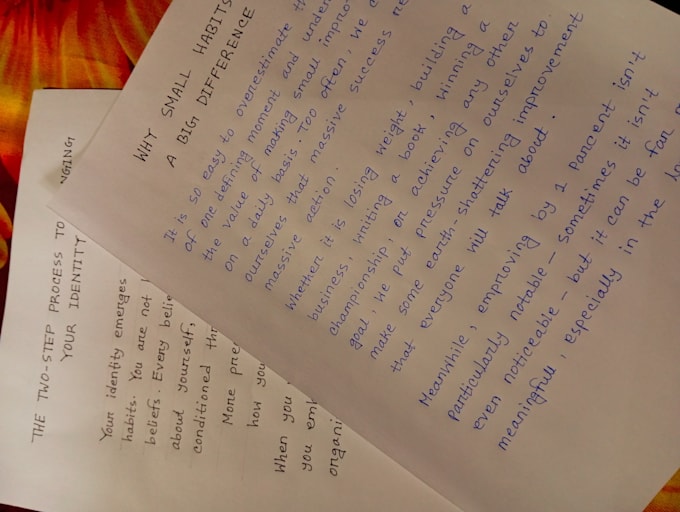 WHY SMALL HABITS
A BIG DIFFERENCE
It is so easy to overestimate
of one defining moment and
the value of making small
on a daily basis. Too often, we
ourselves that massive success
massive action.
Whether it is losing weight, building a
business, writing a book, winning a
championship, or achieving any other
goal, we put pressure on ourselves to
make some earth-shattering improvement
that everyone will talk about.
Meanwhile, emproving by 1 parcent isn't
particularly notable - sometimes it isn't
even noticeable - but it can be far
meaningfull, especially in the
THE TWO-STEP PROCESS TO
YOUR IDENTITY
Your identity emerges
habits. You are not
beliefs. Every
about yourself,
conditioned
More
how you
When you
you